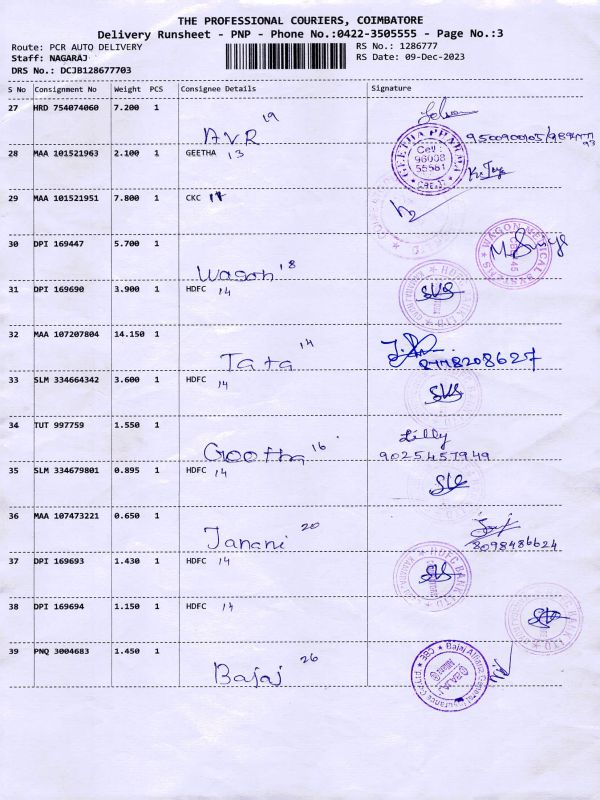 THE PROFESSIONAL COURIERS, COIMBATORE
Delivery Runsheet - PNP - Phone No.:0422-3505555 - Page No.:3
Route: PCR AUTO DELIVERY RS No.: 1286777
Staff: NAGARAJ RS Date: 09-Dec-2023
DRS No.: DCJB128677703
S No Consignment No Weight PCS Consignee Details Signature
27 HRD 754074060 7.200 1 AVR 19
28 MAA 101521963 2.100 1 GEETHA 13
GEETHA Cell : 96008 55561
29 MAA 101521951 7.800 1 CKC
30 DPI 169447 5.700 1 Wagon 18
WAGON
31 DPI 169690 3.900 1 HDFC 14 SVS
32 MAA 107207804 14.150 1 Tata 14
8778208627
33 SLM 334664342 3.600 1 HDFC 14 SVS
34 TUT 997759 1.550 1 Geetha 16 Lilly
9025457949
35 SLM 334679801 0.895 1 HDFC 14
36 MAA 107473221 0.650 1 Janani 20
8098486624
37 DPI 169693 1.430 1 HDFC 14 SVS
HDFC BANK LTD
38 DPI 169694 1.150 1 HDFC 14
39 PNQ 3004683 1.450 1 Bajaj 26
Bajaj Allianz General Insurance